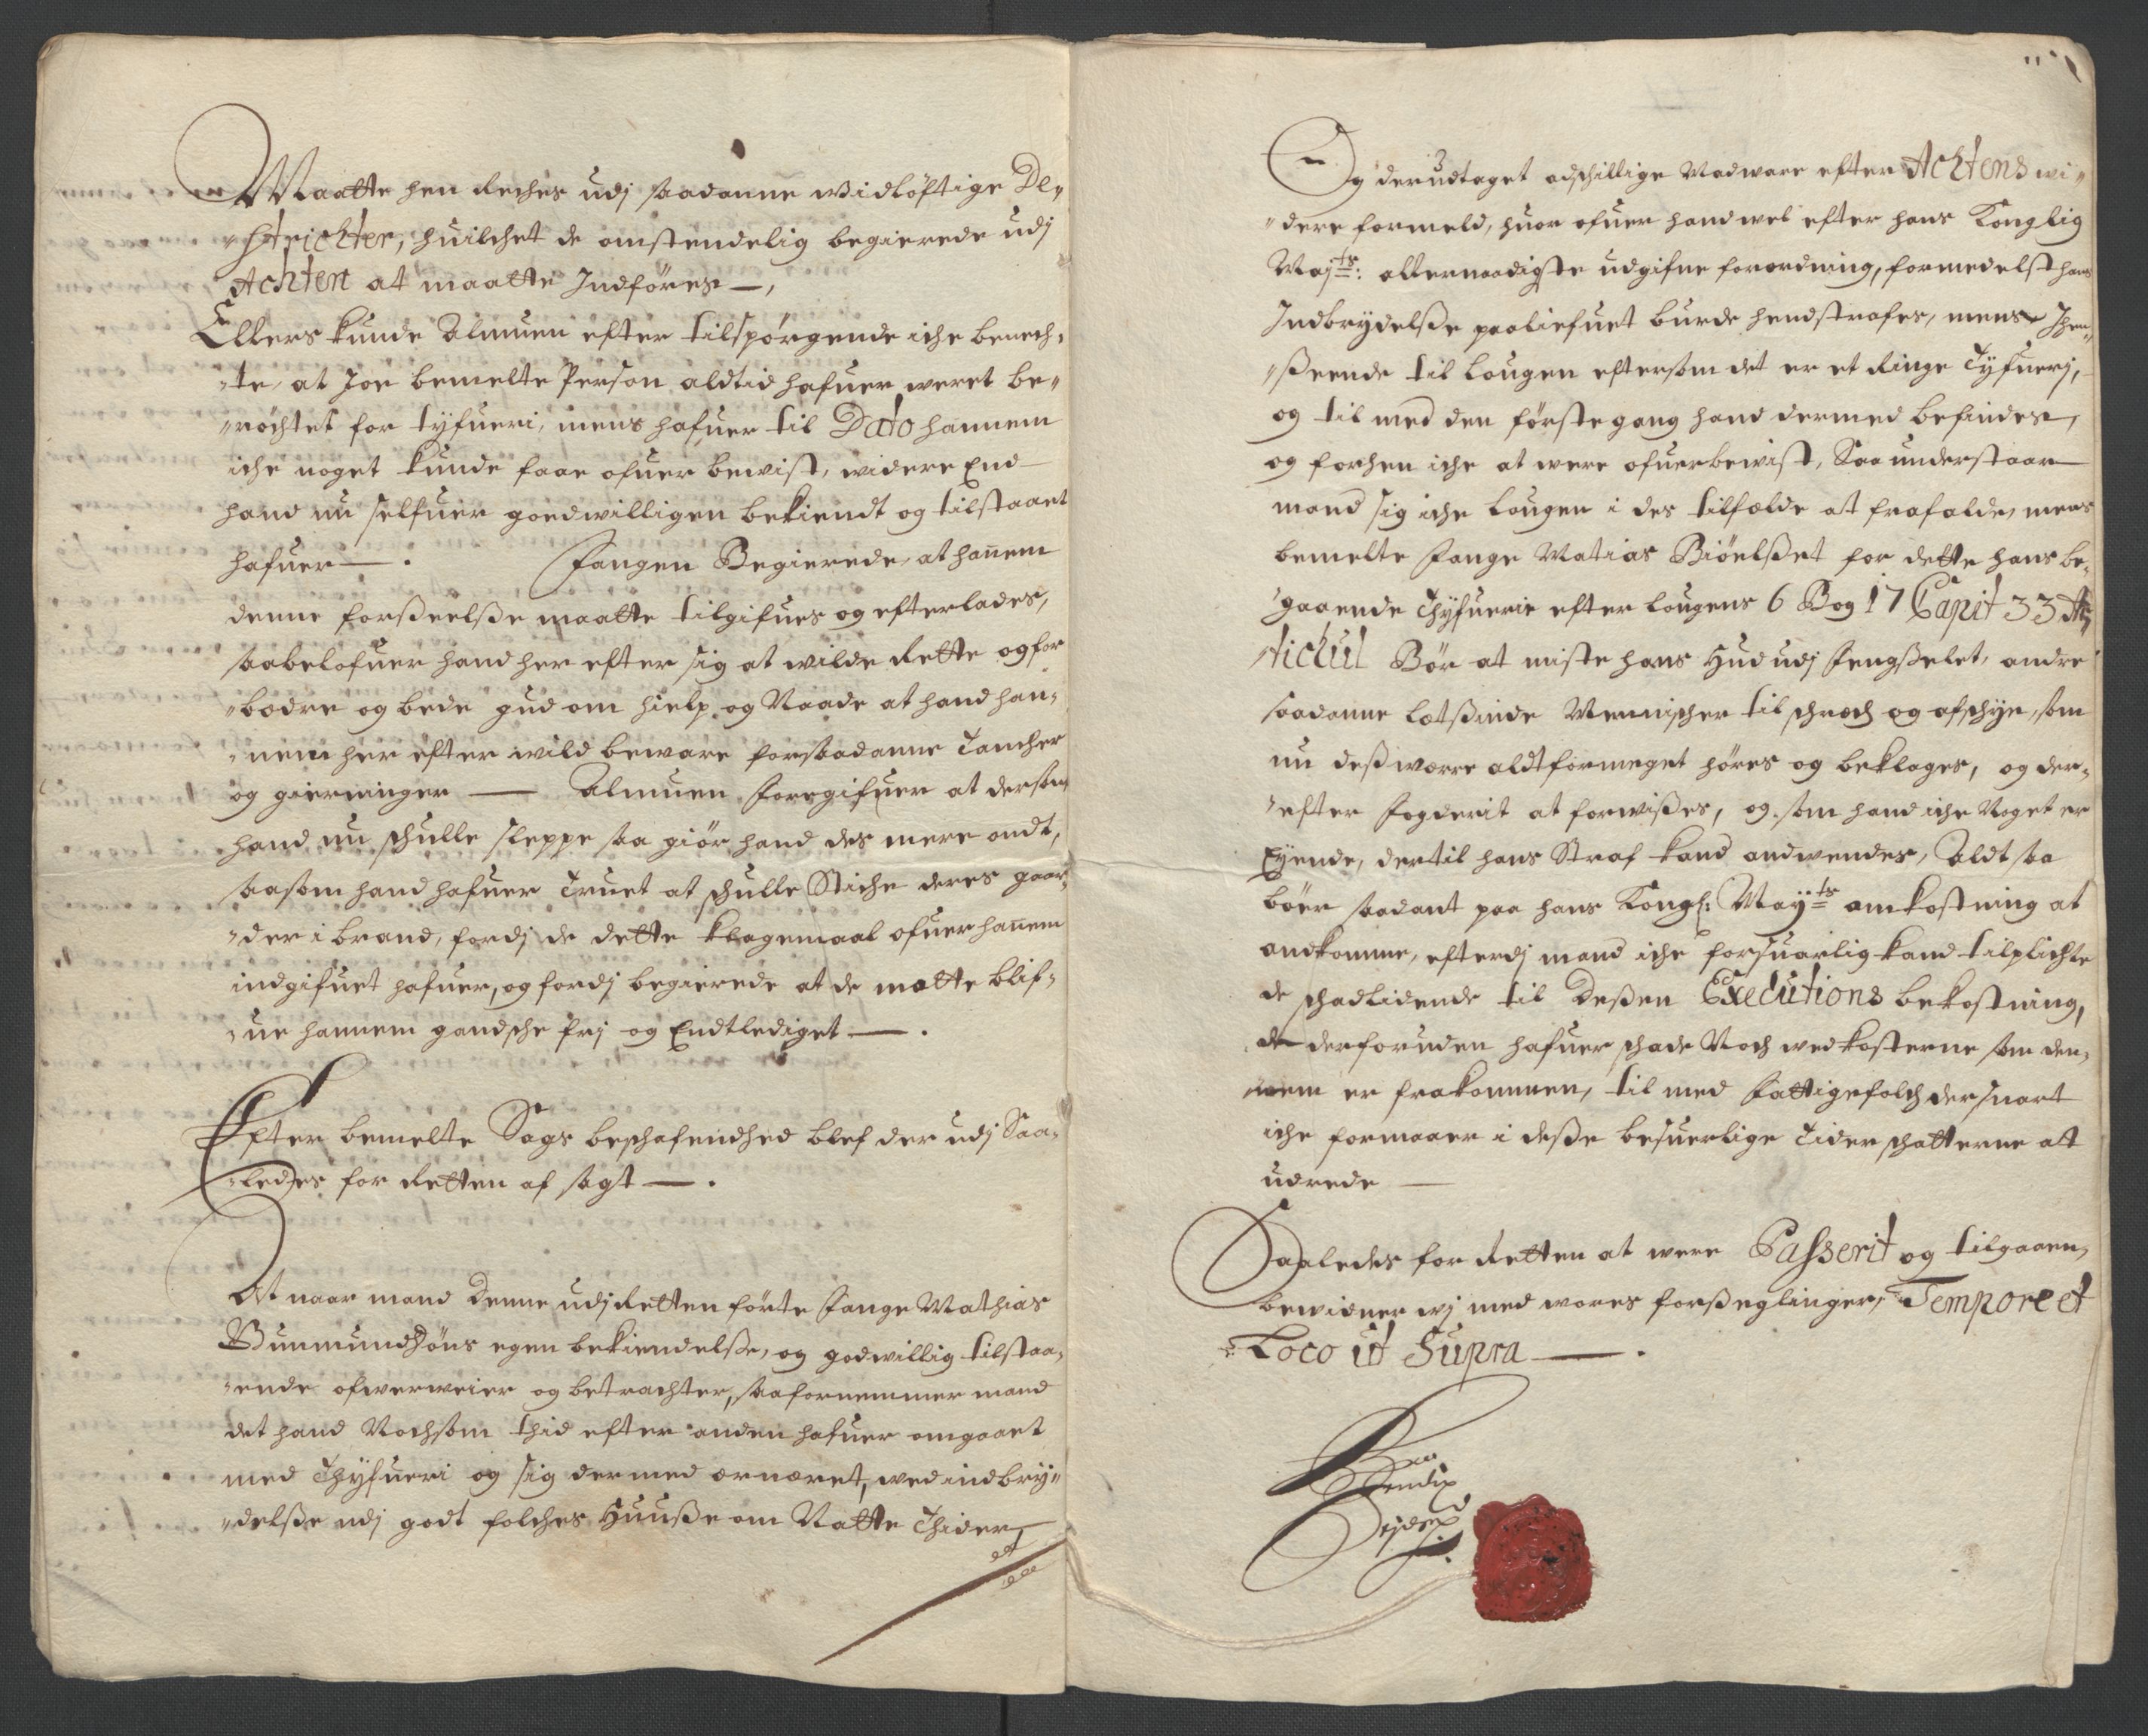 Maatte hen Reches udj saadanne widløftige De-
-striChter, huilchet de omstendelig begierede udj
AChten at maatte Indføres —,
Ellers kunde Almuen efter tilspørgende iche benech-
-te, at Joe bemelte Person aldtid hafuer weret be-
-røchtet for tyfueri, mens hafuer til Dato hannem
iche noget kunde faae ofuer bewist, widere End
hand nu selfuer goedwilligen bekiendt og tilstaaet
hafuer — . Fangen Begierede, at hañem
denne forßeelße maatte tilgifues og efterlades,
saa belofuer hand her efter sig at wilde Rette og for
-bedre og bede gud om hielp og Naade at hand han-
-nem her efter wild beware for saadanne Tancher
og gierninger — Almuen foregifuer at dersom
hand nu schulle sleppe saa giør hand des mere ondt,
saasom hand hafuer Truet at schulle Stiche deres gaar-
-der i brand, fordj de dette klagemaal ofuer hañem
indgifuet hafuer, og fordj begierede at de matte blif-
-ue hannem gandsche frj og Endtlediget — .
Efter bemelte Sags beschafendhed blef der udj Saa-
-ledes for Retten af sagt — .
At naar mand denne udj Retten førte Fange Mathias
Gunmundsøns egen bekiendelße, og godwillig tilstaa-
-ende ofwerweier og betrachter, saa fornemmer mand
det hand Nochsom thid efter anden hafuer omgaaet
med Thyfueri og sig dermed ernæret, wed indbry-
-delße udj godt folches Huuße om Natte Thider,
Og der udtaget adschillige Madware efter AChtens wi-
-dere formeld, huor ofuer hand wel efter hans Konglig
Majts: allernaadigste udgifne forordning, formedelst hans
Indbrydelße paa liefuet burde hendstrafes, mens
-ßeende til Lougen eftersom det er et Ringe Tyfuerj,
og til med den første gang hand dermed befindes,
og forhen iche at were ofuerbewist, Saa understaar
mand sig iche Lougen i des tilfælde at frafalde, mens
bemelte Fange Matias for dette hans be-
-gaaende Thyfuerie efter Lougens 6 Bog 17 Capit 33 Ar-
-tichul Bør at miste hans Hud udj fengßelet, andre
saadanne letsinde Mennischer til schrech og afschye, som
nu deßwerre aldtformeget høres og beklages, og der-
-efter fogderit at forwißes, og som hand iche Noget er
Eyende, dertil hans Straf kand andwendes, Aldt saa
bøer saadant paa hans Kongl: Mayts omkostning at
andkomme, efterdj mand iche forsuarlig kand tilplichte
de schadlidende til deßen Executions bekostning,
de derforuden hafuer schade Noch wed kosterne som den-
-nem er frakommen, til med fattige folch der snart
iche formaaer i deße besuerlige Tider schatterne att
udrede —
Saaledes for Retten at were Passerit og tilgaaen,
bewidner wj med wores forßeglinger, Tempore et
Loco ut Supra — .